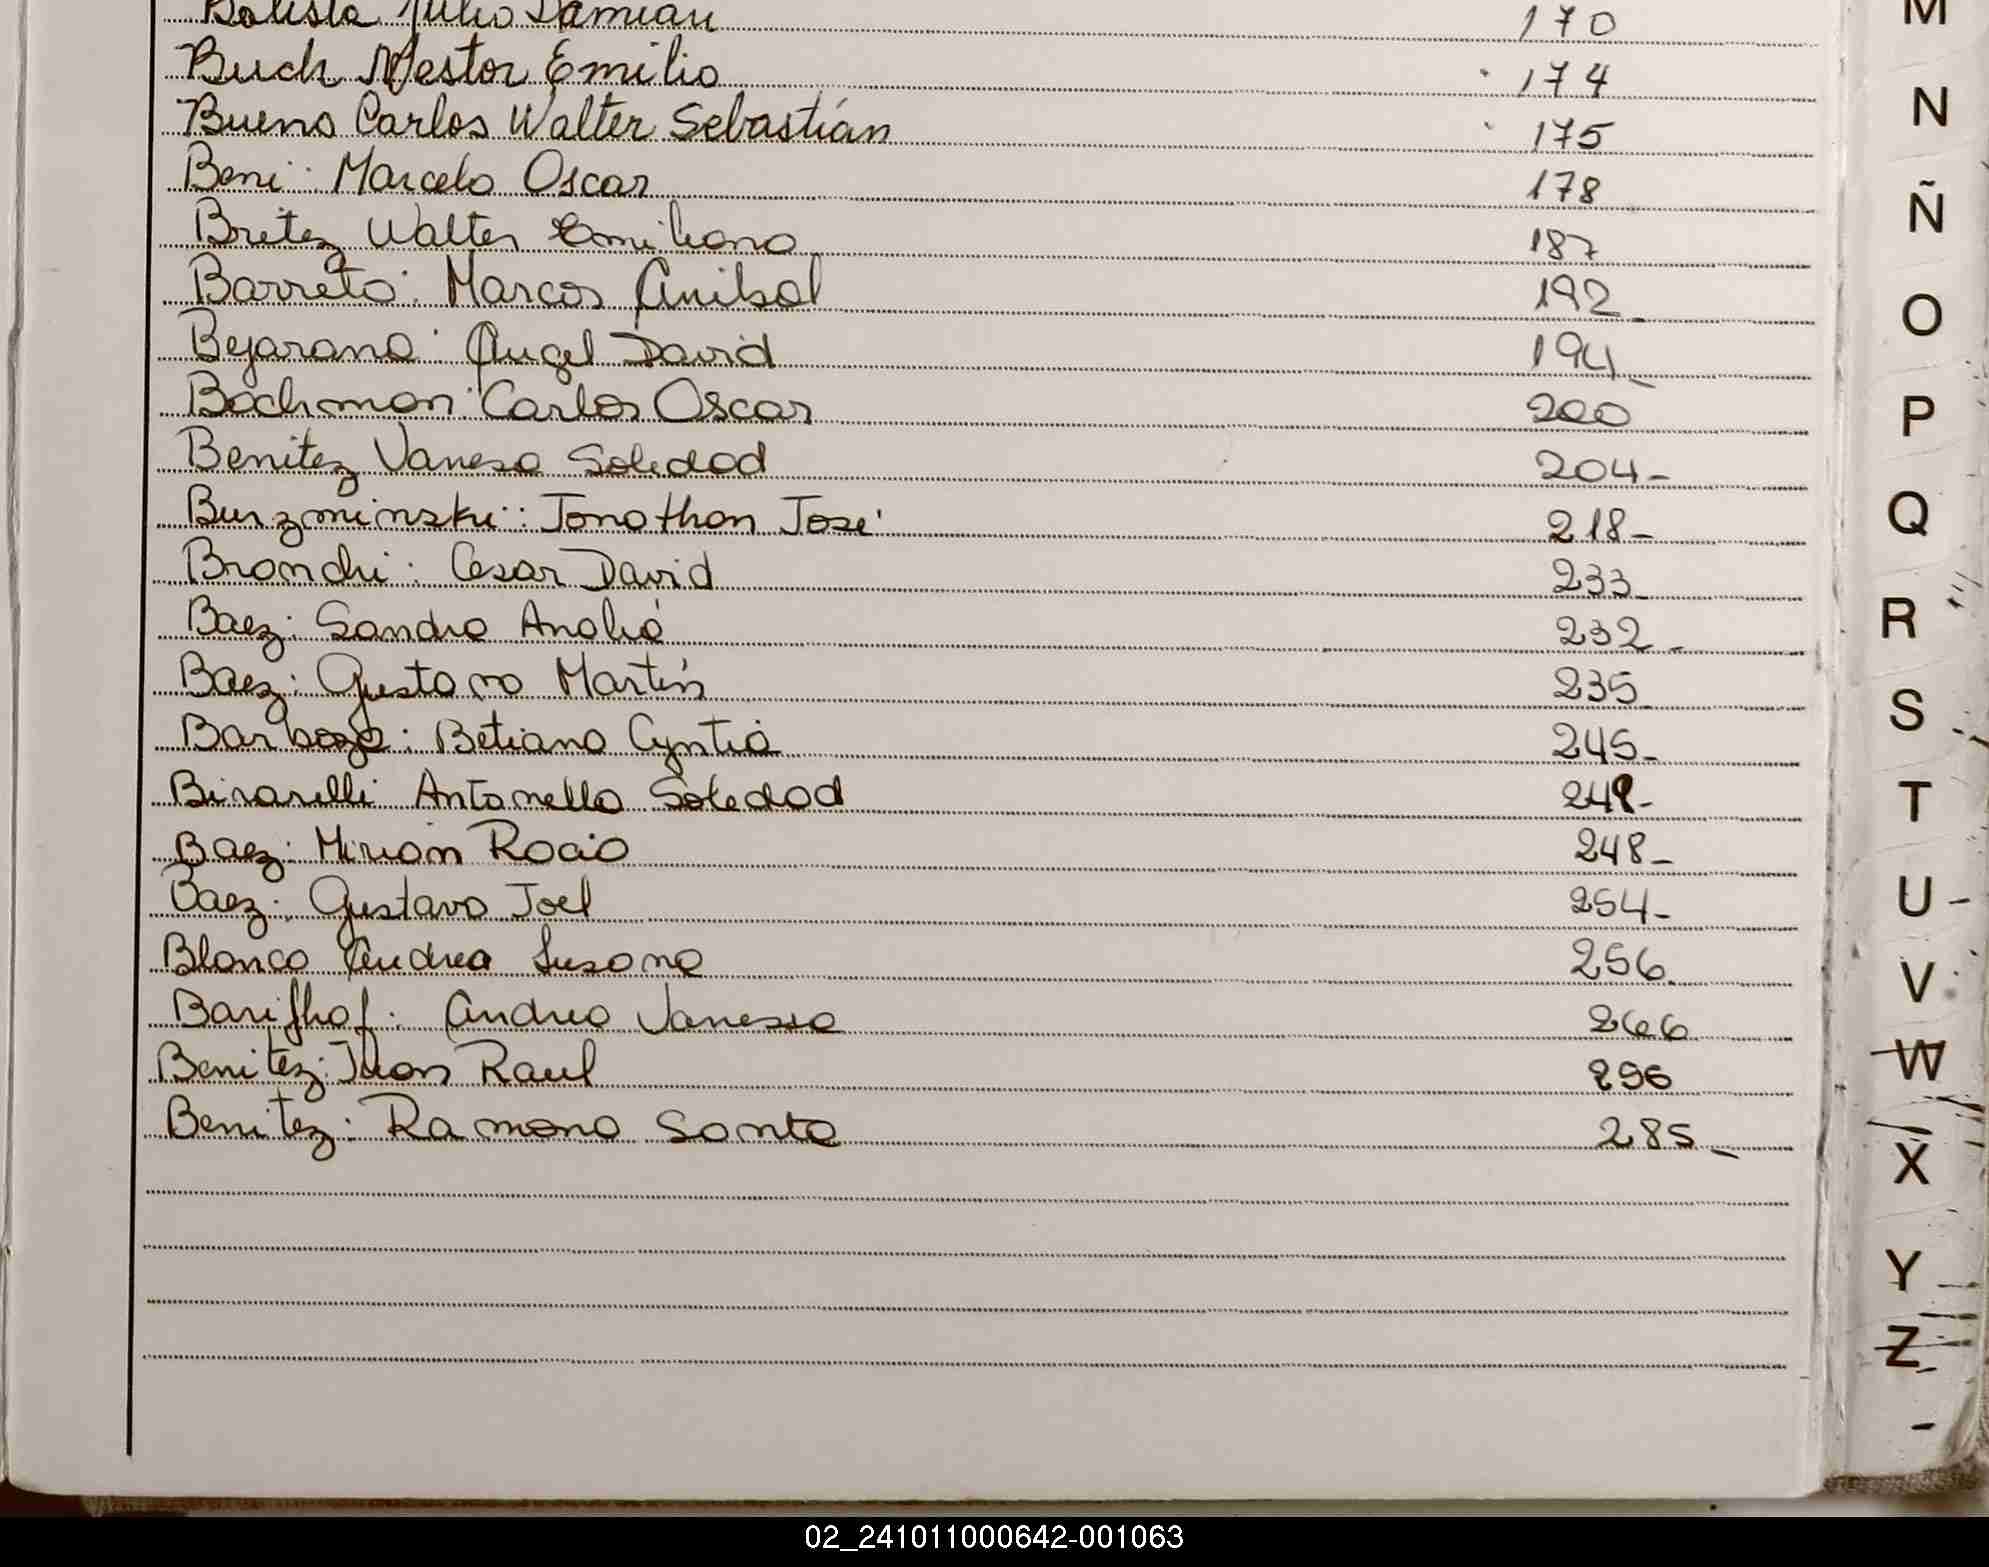 Batista Julio Damian 170
Buch Nestor Emilio 174
Bueno Carlos Walter Sebastián 175
Beni: Marcelo Oscar 178
Britez Walter Emiliano 187
Barreto: Marcos Anibal 192_
Bejarano: Angel David 194_
Bachman: Carlos Oscar 200
Benitez Vanesa Soledad 204_
Burzminski: Jonathan José 218_
Bronchi: Cesar David 233_
Baez: Sandra Analia 232_
Baez: Gustavo Martín 235_
Barboza: Betiana Cyntia 245_
Birarelli Antonella Soledad
Baez: Mirian Rocio 248_
Baez: Gustavo Joel 254_
Blanco Andrea Susana 256_
Andrea Vanessa 266
Benitez: Juan Raul
Benitez: Ramona Santa 285_
M
N
Ñ
O
P
Q
R
S
T
U
V
W
X
Y
Z
02_241011000642-001063